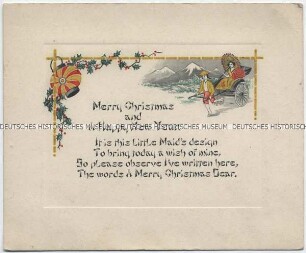 Merry Christmas
and
DEUTSCHES HISTORISCHES MUSEUM DEUTSCHES HISTORISCHES
It is this Little Maid's design
To bring today a wish of mine,
So please observe I've written here,
The words A Merry Christmas Dear.